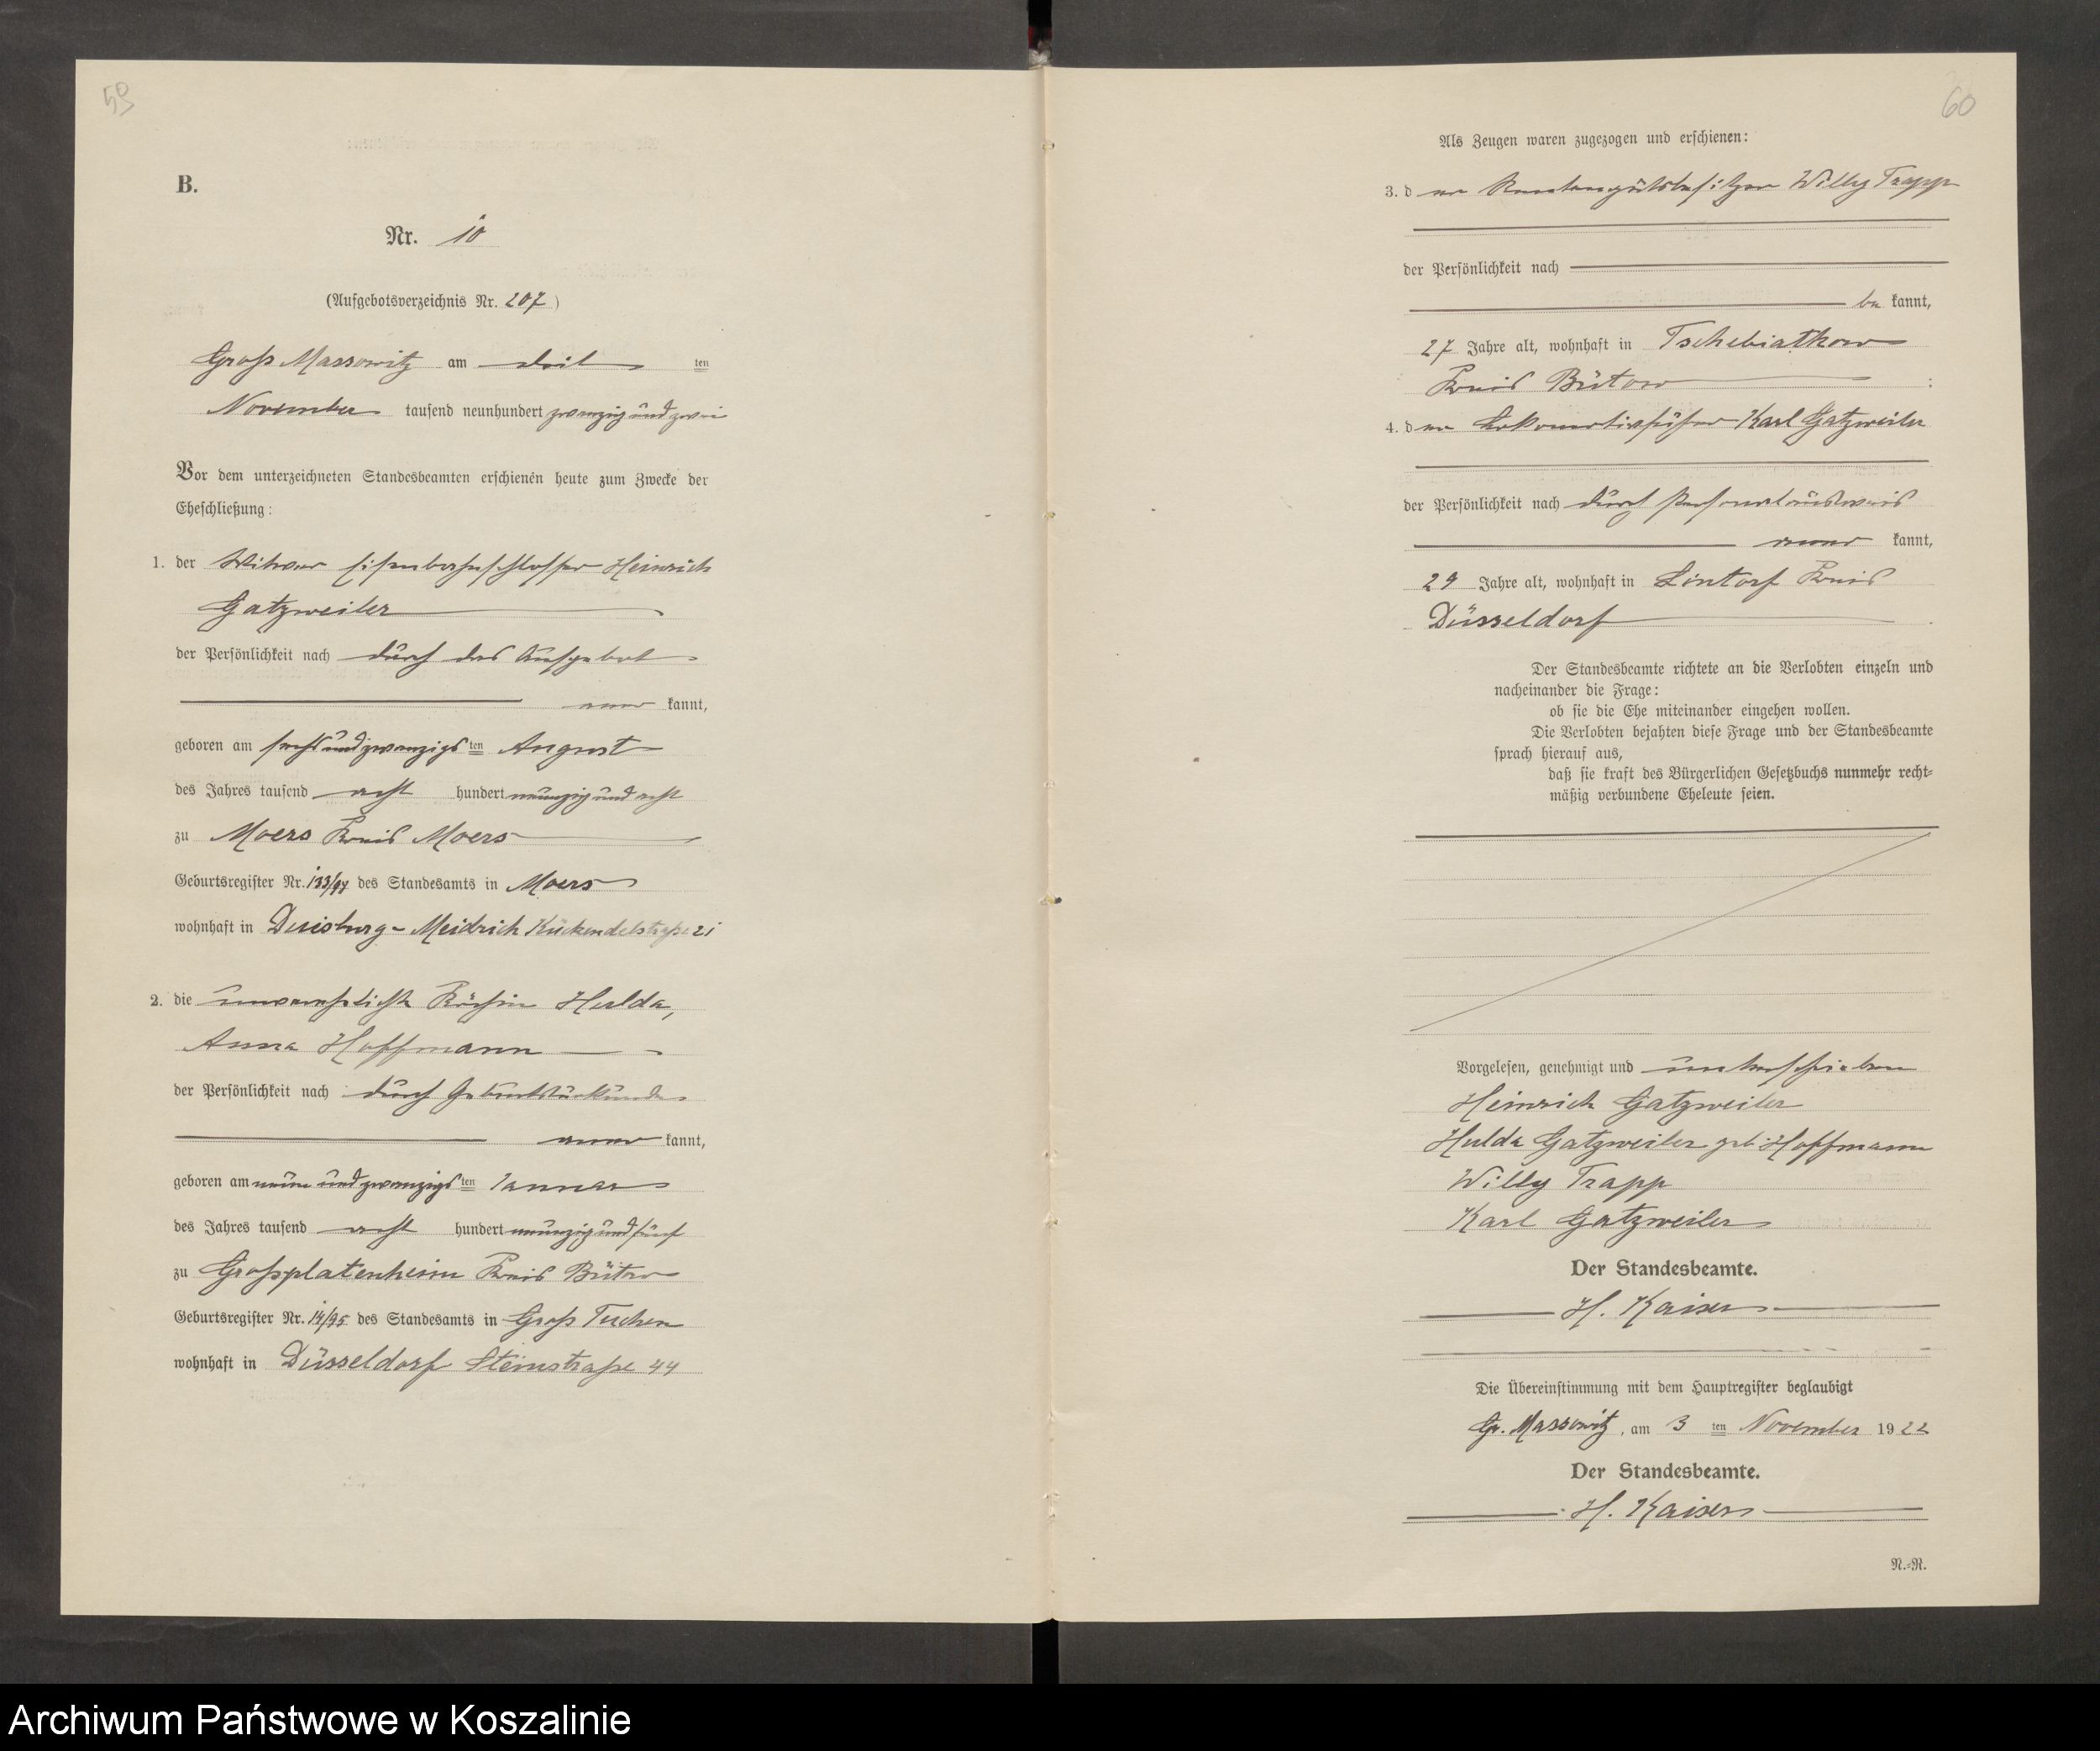 59
B.
Nr. 10
(Aufgebotsverzeichnis Nr. 207)
Groß Massowitz am dritten
November tausend neunhundert zwanzig und zwei
Vor dem unterzeichneten Standesbeamten erschienen heute zum Zwecke der
Eheschließung:
1. der Witwer Eisenbahnschlosser Heinrich
Gatzweiler
der Persönlichkeit nach durch das Aufgebot
anerkannt,
geboren am sechsundzwanzigsten August
des Jahres tausend acht hundert neunzig und acht
zu Moers Kreis Moers
Geburtsregister Nr. des Standesamts in Moers
wohnhaft in Duisburg-Meidrich Kückendelstraße 21
2. die unverehelichte Köchin Hulda,
Anna Hoffmann
der Persönlichkeit nach durch Geburtsurkunde
anerkannt,
geboren am neun und zwanzigsten Januar
des Jahres tausend acht hundert neunzig und fünf
zu Großplatenheim Kreis Bütow
Geburtsregister Nr. 14/95 des Standesamts in Groß Tuchen
wohnhaft in Düsseldorf Steinstraße 44
60
Als Zeugen waren zugezogen und erschienen:
3. der Rentengutsbesitzer Willy Trapp
der Persönlichkeit nach
bekannt,
27 Jahre alt, wohnhaft in Tschebiatkow
Kreis Bütow :
4. der Lokomotivheizer Karl Gatzweiler
der Persönlichkeit nach durch Personalausweis
anerkannt,
29 Jahre alt, wohnhaft in Lintorf Kreis
Düsseldorf .
Der Standesbeamte richtete an die Verlobten einzeln und
nacheinander die Frage:
ob sie die Ehe miteinander eingehen wollen.
Die Verlobten bejahten diese Frage und der Standesbeamte
sprach hierauf aus,
daß sie kraft des Bürgerlichen Gesetzbuchs nunmehr recht-
mäßig verbundene Eheleute seien.
Vorgelesen, genehmigt und unterschrieben
Heinrich Gatzweiler
Hulda Gatzweiler geb. Hoffmann
Willy Trapp
Karl Gatzweiler
Der Standesbeamte.
H. Kaiser
Die Übereinstimmung mit dem Hauptregister beglaubigt
Gr. Massowitz, am 3 ten November 1922
Der Standesbeamte.
H. Kaiser
N.-N.
Archiwum Państwowe w Koszalinie